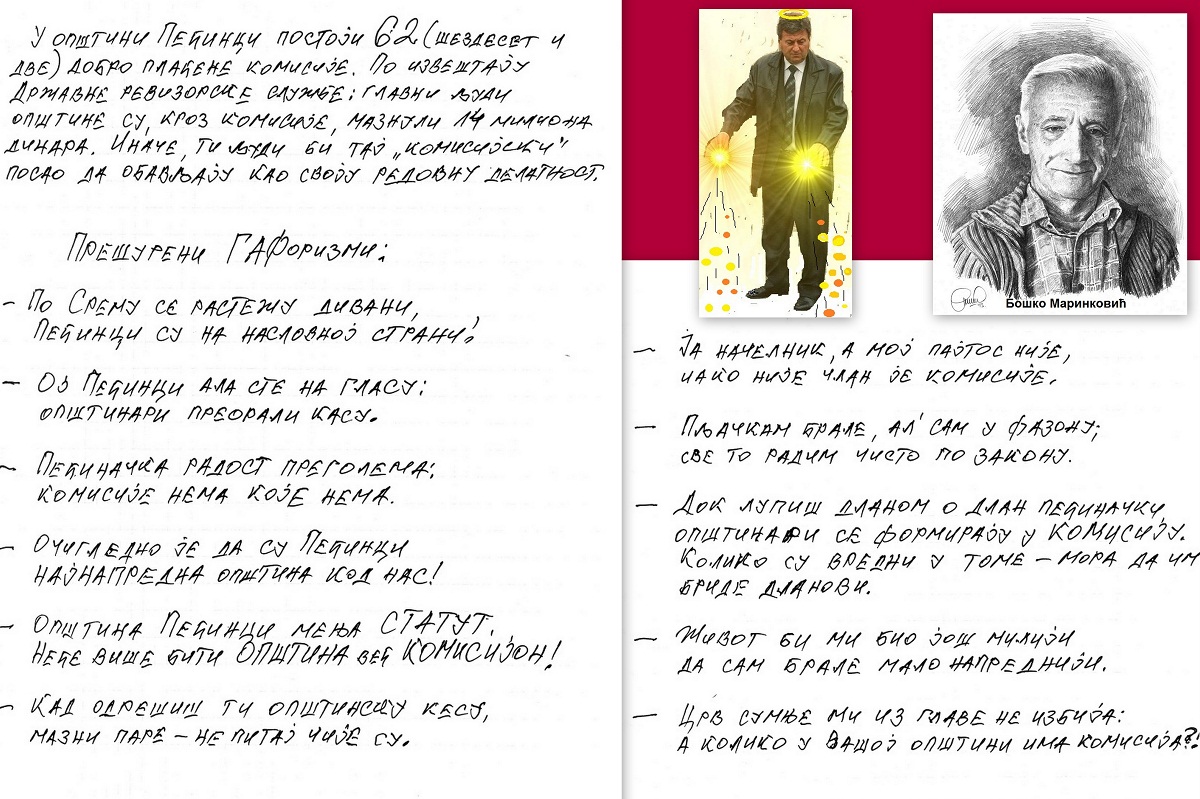 У општини Пећинци постоји 62 (шездесет и
две) добро плаћене комисије. По извештају
Државне ревизорске службе; главни људи
општине су, кроз комисије, мазнули 14 милиона
динара. Иначе, ти људи би тај „комисијски"
посао да обављају као своју редовну делатност.
Прешурени ГАФоризми:
- По Срему се растежу дивани,
Пећинци су на насловној страни!
- Ој Пећинци ала сте на гласу:
општинари преорали касу.
- Пећиначка радост преголема:
комисије нема које нема.
- Очигледно је да су Пећинци
најнапредна општина код нас!
- Општина Пећинци мења СТАТУТ.
Неће више бити ОПШТИНА већ КОМИСИЈОН!
- Кад одрешиш ти општинску кесу,
мазни паре - не питај чије су.
Бошко Маринковић
- Ја начелник, а мој пајтос није,
иако није члан је комисије.
- Пљачкам брале, ал' сам у фазону;
све то радим чисто по закону.
- Док лупиш дланом о длан пећиначки
општинари се формирају у КОМИСИЈУ.
Колико су вредни у томе - мора да им
бриде дланови.
- Живот би ми био још милији
да сам брале мало напреднији.
- Црв сумње ми из главе не избија:
а колико у Вашој општини има комисија?!